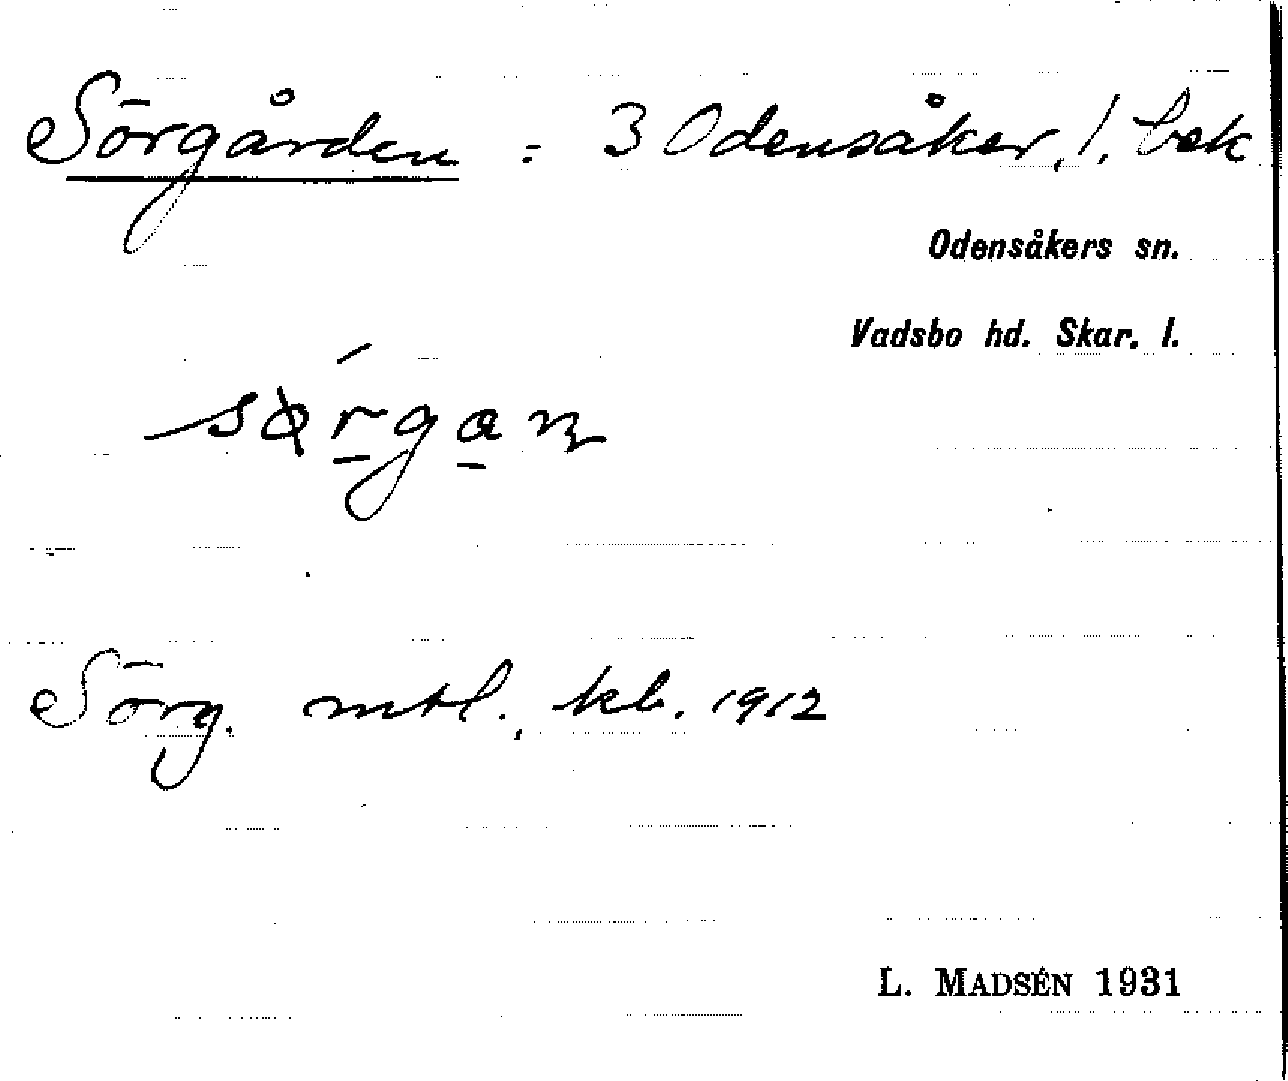 Sörgården : 3 Odensåker, l. bek
Odensåkers sn.
Vadsbo hd. Skar. l.
Sörg. mtl., kb. 1912
L. MADSÉN 1931